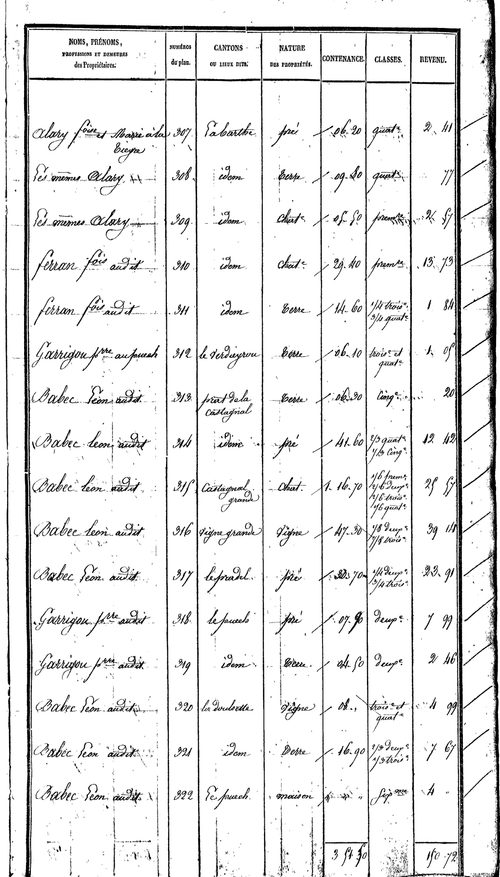 NOMS, PRÉNOMS,
PROFESSIONS ET DEMEURES
des Propriétaires.
NUMÉROS
du plan.
CANTONS
OU LIEUX DITS.
NATURE
DES PROPRIÉTÉS.
CONTENANCE.
CLASSES.
REVENU.
Alary fois et Marre à la 307 Labarthe pré 06.20 quate 2 41
Les mêmes Alary 308 idem Terre quate 77
Les mêmes Alary 309 idem Chate premre 2 57
ferran fois audit 310 idem Chate 29.40 premre 13 73
ferran fois audit 311 idem Terre 14.60 1/4 trois 1 84
3/4 quate
Garrigou prre au puech 312 le Terre 06.10 trois et 1 05
quate
Babec Léon audit 313 prat de la Terre 06.30 cinqe 20
Castagnal
Babec leon audit 314 idem pré 41.60 quate 12 42
cinqe
Babec leon audit 315 Castagnal Chat. 1.16.70 1/6 premre 25 57
grande 2/6 deuxe
2/6 troise
1/6 quate
Babec leon audit 316 Vigne grande Vigne 47.30 1/8 deuxe 39 41
7/8 troise
Babec Léon audit 317 le pradel pré 1/4 deuxe 22 91
3/4 troise
Garrigou prre audit 318 le puech pré deuxe 7 99
Garrigou prre audit 319 idem Terre 04.50 deuxe 2 46
Babec Léon audit 320 Vigne 08 „ trois et 4 99
quate
Babec Léon audit 321 idem Terre 16.90 1/3 deuxe 7 67
2/3 troise
Babec Léon audit 322 Le puech maison „ „ „ 4 „
3 54 50 150 72